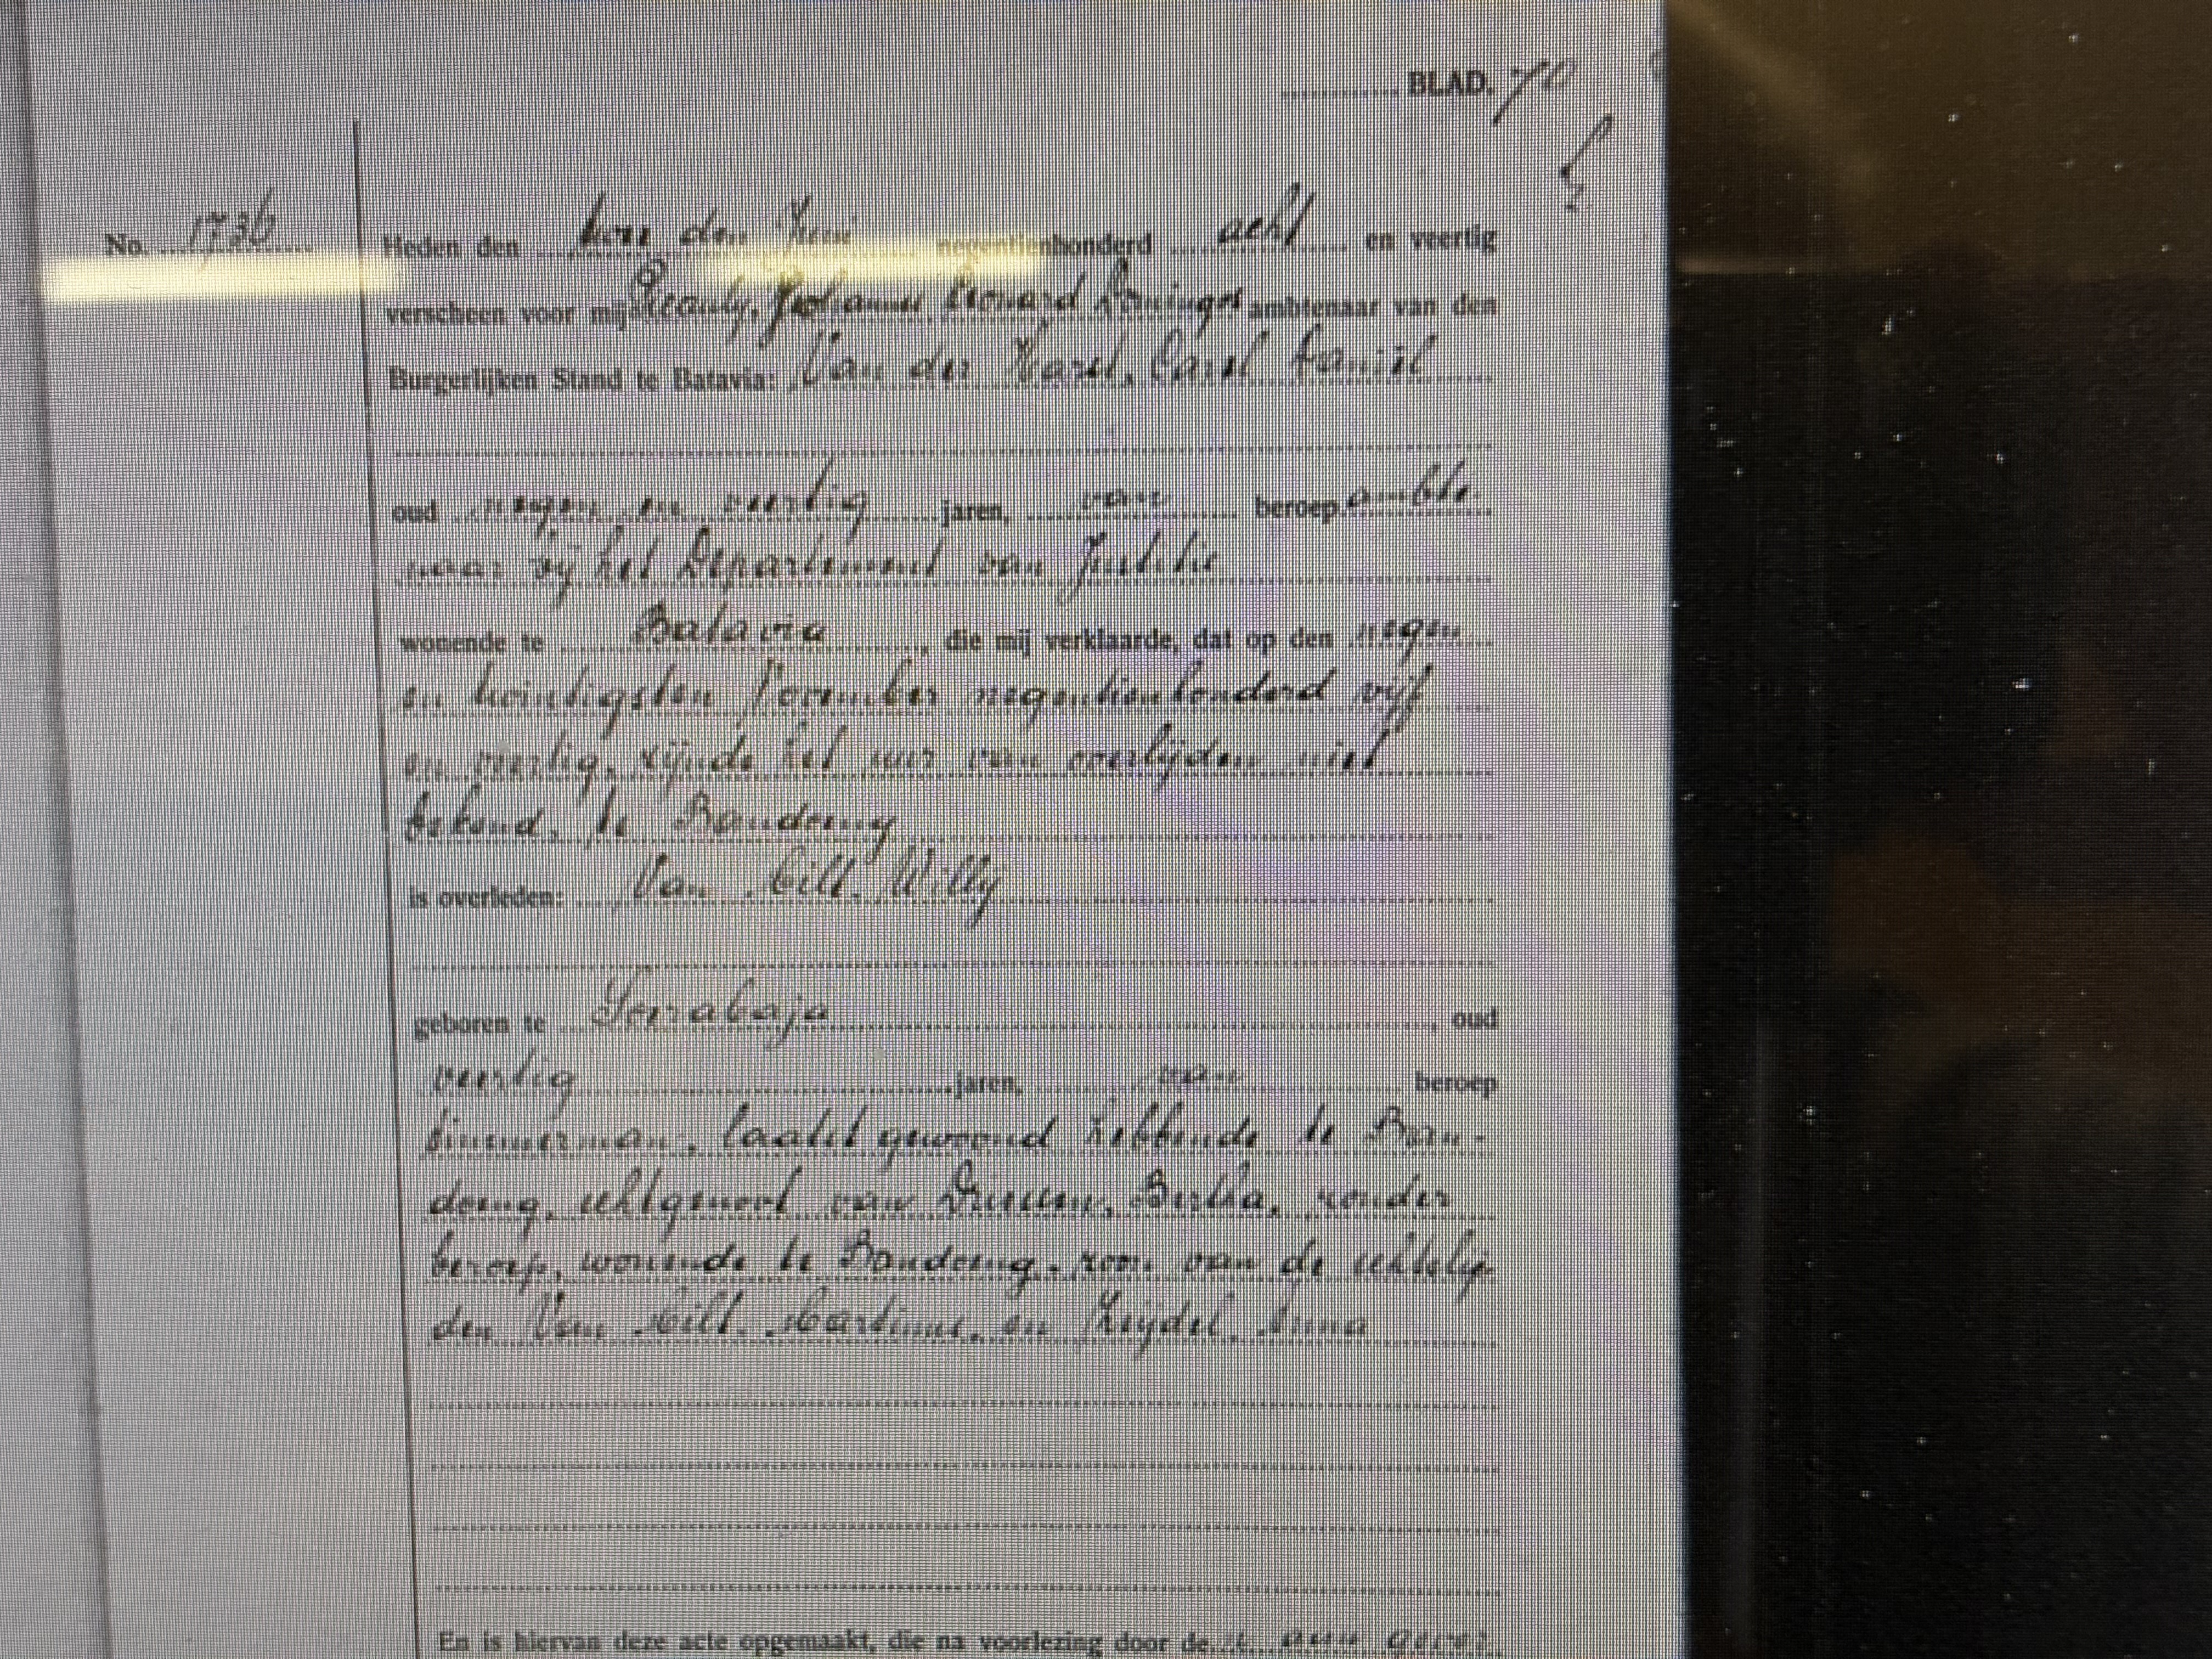 BLAD. 70
No. 1736
Heden den den negentienhonderd acht en veertig
verscheen voor mij Leonard ambtenaar van den
Burgerlijken Stand te Batavia: Van der Carel
oud negen en veertig jaren, van beroep ambte-
naar bij het Departement van Justitie
wonende te Batavia, die mij verklaarde, dat op den negen
en twintigsten November negentienhonderd vijf
en veertig, zijnde het uur van overlijden niet
bekend, te Bandoeng
is overleden: Van Willy
geboren te Soerabaja, oud
veertig jaren, van beroep
timmerman, laatst gewoond hebbende te Ban-
doeng, echtgenoot van Bertha, zonder
beroep, wonende te Bandoeng, zoon van de echtelie-
den Van Martinus, en Anna
En is hiervan deze acte opgemaakt, die na voorlezing door de